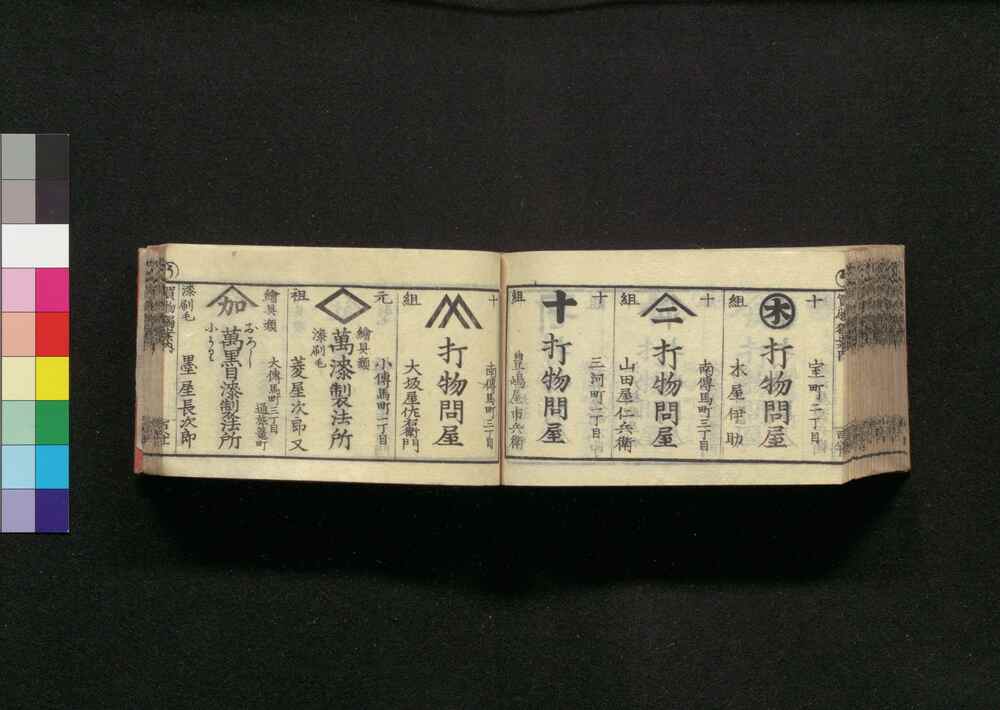 十
室町二丁目
木
打物問屋
組
木屋伊助
十
南傳馬町三丁目
二
打物問屋
組
山田屋仁兵衛
十
三河町二丁目
十
打物問屋
組
豊嶋屋市兵衛
十
南傳馬町三丁目
打物問屋
組
大坂屋佐右衛門
元
小傳馬町二丁目
繪具類
萬漆製法所
漆刷毛
祖
菱屋次郎又
繪具類
大傳馬町三丁目
通旅籠町
加
おろし
萬黒目漆製法所
小うり
漆刷毛
墨屋長次郎